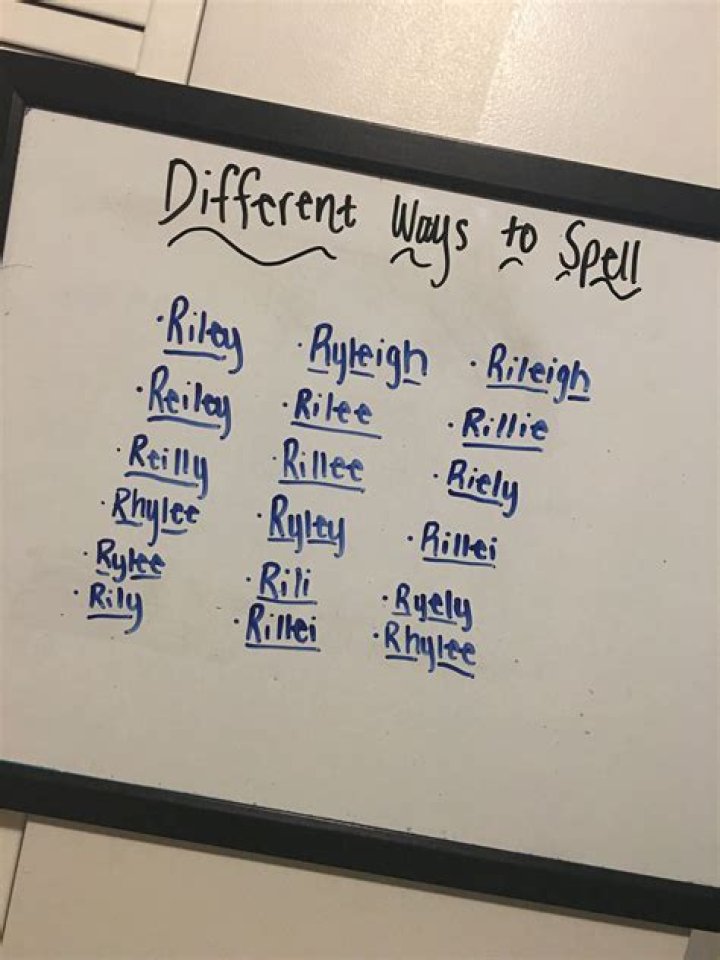 Different Ways to Spell
·Riley ·Ryleigh ·Rileigh
·Reiley ·Rilee ·Rillie
·Reilly ·Rillee ·Riely
·Rhylee ·Ryley ·Rillei
·Rylee ·Rili ·Ryely
·Rily ·Rillei ·Rhylee